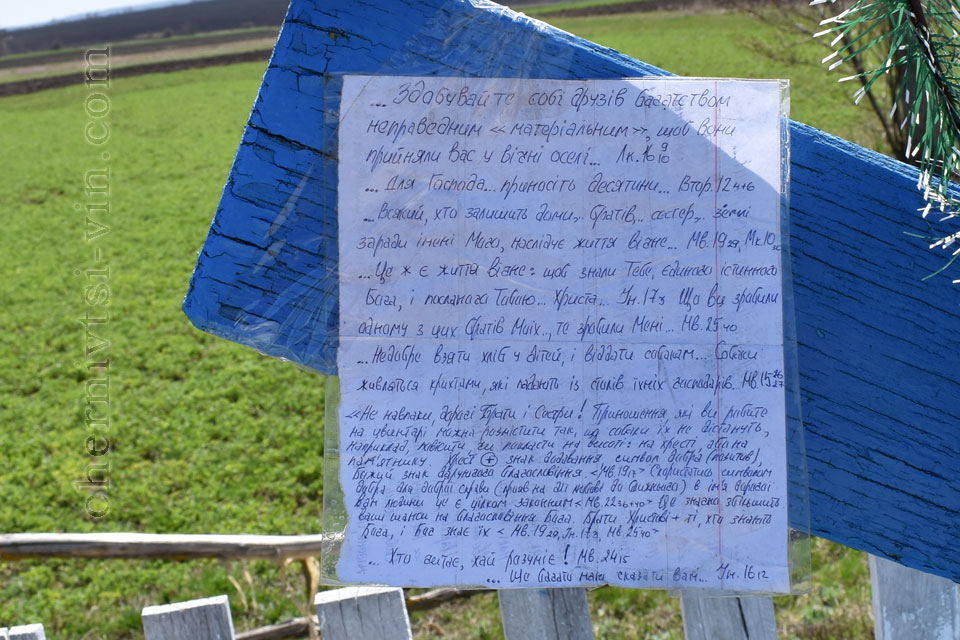 ... Здобувайте собі друзів багатством
неправедним «матеріальним», щоб вони
прийняли вас у вічні оселі... Лк. 16 9
... Для Господа... приносіть десятини... Втор. 12 4+6
... Всякий, хто залишить доми,.. братів,.. сестер,.. землі
заради імені Мого, наслідує життя вічне... Мв. 19 29, Мк 10
... Це ж є життя вічне: щоб знали Тебе, єдиного істинного
Бога, і посланого Тобою... Христа... Ін. 17 3 Що ви зробили
одному з цих братів Моїх,.. те зробили Мені... Мв. 25 40
... Недобре взяти хліб у дітей, і віддати собакам... Собаки
живляться крихтами, які падають із столів їхніх господарів... Мв 15 26 27
«Не навпаки, дорогі Брати і Сестри! Приношення які ви робите
на цвинтарі можна розмістити так, що собаки їх не дістануть,
наприклад, повісити чи покласти на висоті: на хресті, або на
пам'ятнику. Хрест + знак додавання символ добра (позитив),
Божий знак даруючого благословіння <Мв. 19 17> Скористатись символом
добра для доброї справи ( на дії любові до ближнього) в ім'я дорогої
вам людини це є цілком законним <Мв. 22 36+40> Це значно збільшить
ваші шанси на благословіння Бога. Брати Христові + ті, хто знають
Бога, і Бог знає їх <Мв. 19 29, Ін. 17 3, Мв. 25 40>
... Хто читає, хай розуміє! Мв. 24 15
... Ще багато маю сказати вам... Ін. 16 12
chernivtsi-vin.com